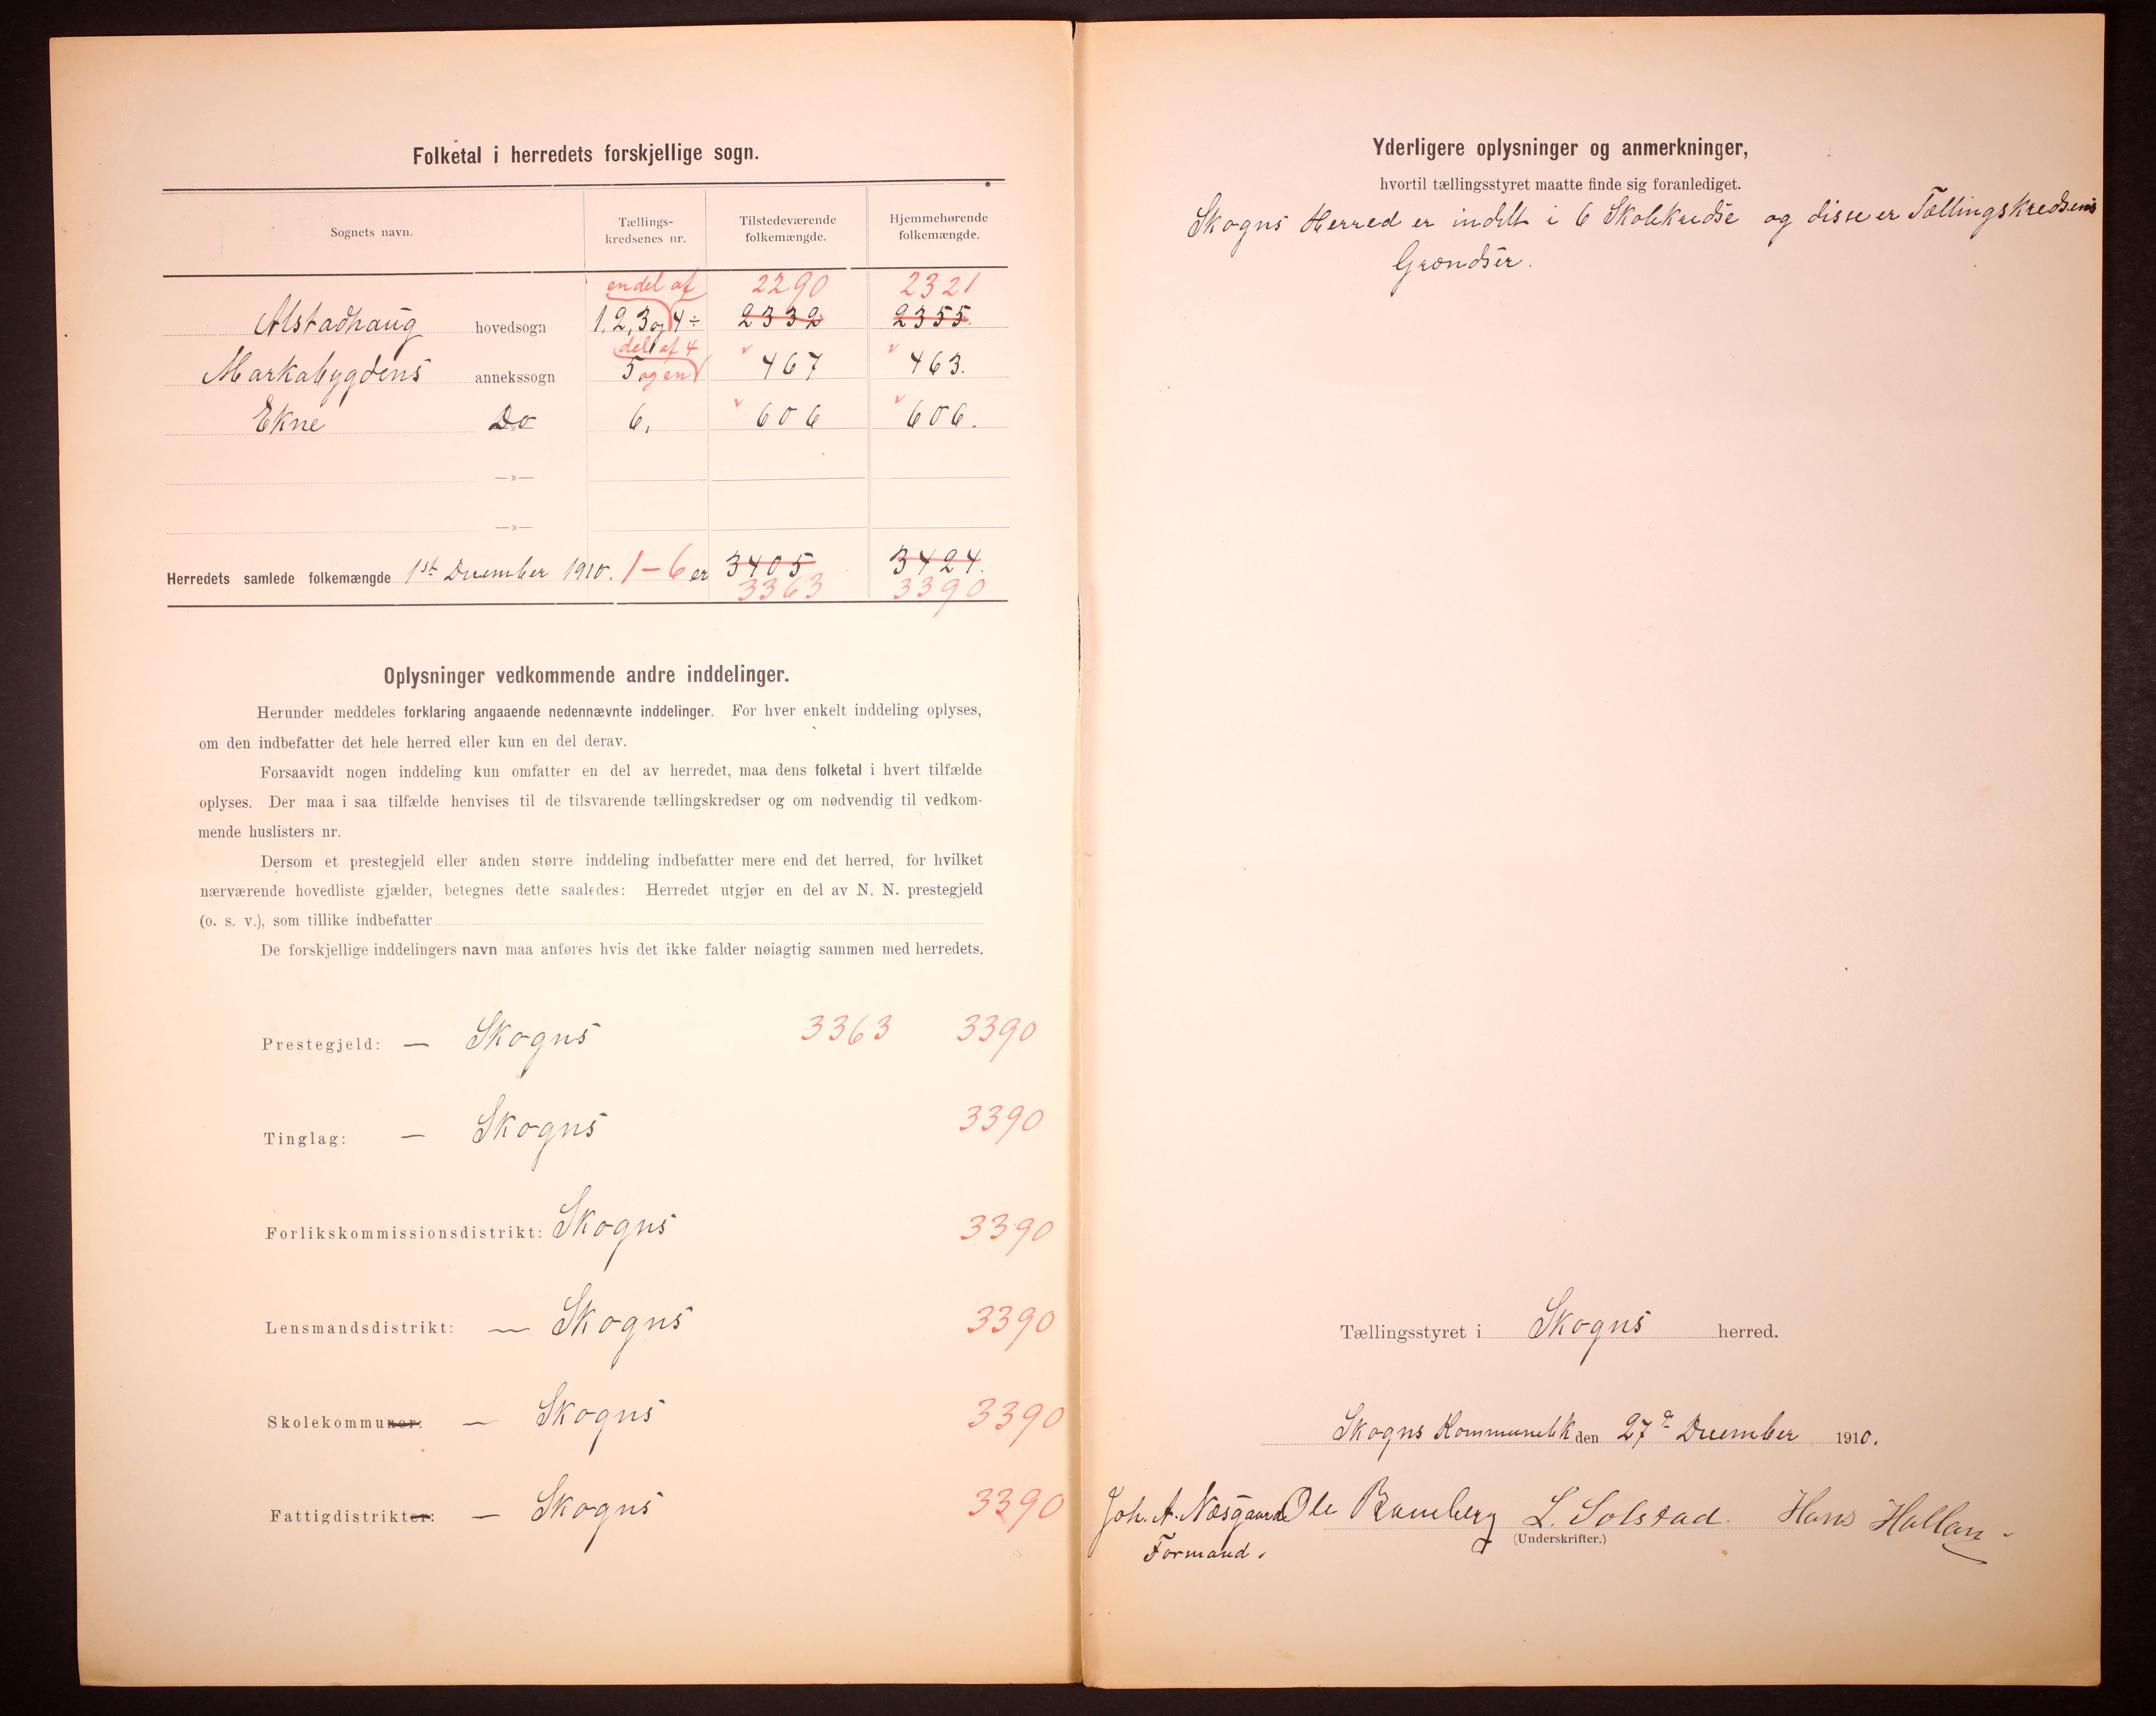 Folketal i herredets forskjellige sogn.
Sognets navn. Tællings-kredsenes nr. Tilstedeværende folkemængde. Hjemmehørende folkemængde.
en del af 2290 2321
Alstadhaug hovedsogn 1, 2, 3 og 4 ÷ 2332 2355.
del af 4
Markabygdens annekssogn 5 og en 467 463.
Ekne Do 6, 606 606.
—»—
—»—
Herredets samlede folkemængde 1st December 1910. 1–6 er 3405 3424.
3363 3390
Oplysninger vedkommende andre inddelinger.
Herunder meddeles forklaring angaaende nedennævnte inddelinger. For hver enkelt inddeling oplyses,
om den indbefatter det hele herred eller kun en del derav.
Forsaavidt nogen inddeling kun omfatter en del av herredet, maa dens folketal i hvert tilfælde
oplyses. Der maa i saa tilfælde henvises til de tilsvarende tællingskredser og om nødvendig til vedkom-
mende huslisters nr.
Dersom et prestegjeld eller anden større inddeling indbefatter mere end det herred, for hvilket
nærværende hovedliste gjælder, betegnes dette saaledes: Herredet utgjør en del av N. N. prestegjeld
(o. s. v.), som tillike indbefatter
De forskjellige inddelingers navn maa anføres hvis det ikke falder nøiagtig sammen med herredets.
Prestegjeld: — Skogns 3363 3390
Tinglag: — Skogns 3390
Forlikskommissionsdistrikt: Skogns 3390
Lensmandsdistrikt: — Skogns 3390
Skolekommuner: — Skogns 3390
Fattigdistrikter: — Skogns 3390
Yderligere oplysninger og anmerkninger,
hvortil tællingsstyret maatte finde sig foranlediget.
Skogns Herred er indelt i 6 Skolekredse og disse er Tællingskredsens
Grændser.
Tællingsstyret i Skogns herred.
Skogns Kommunelk den 27de December 1910.
Joh. A. Næsgaard Ole Ramberg L. Solstad. Hans Hallan
(Underskrifter.)
Formand.